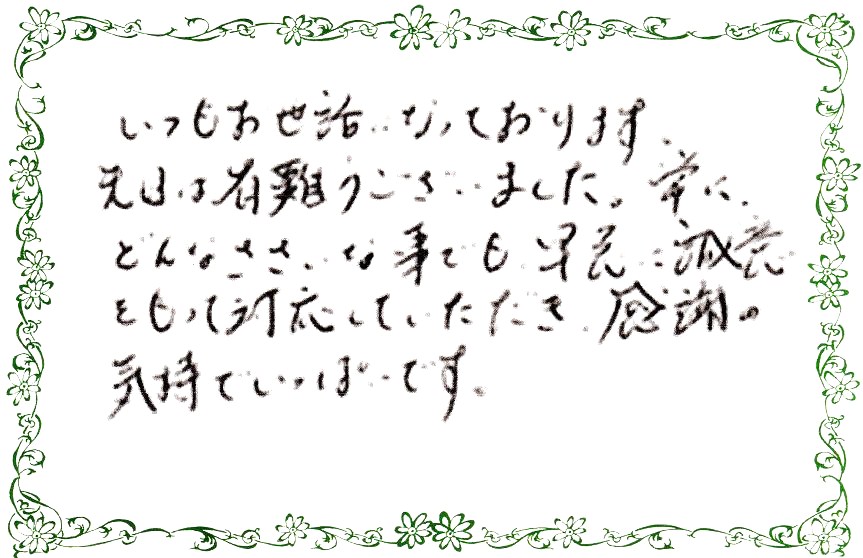 いつもお世話になっております。
先日は有難うございました。常に、
どんなささいな事でも 早急に誠意
をもって対応していただき、感謝の
気持でいっぱいです。